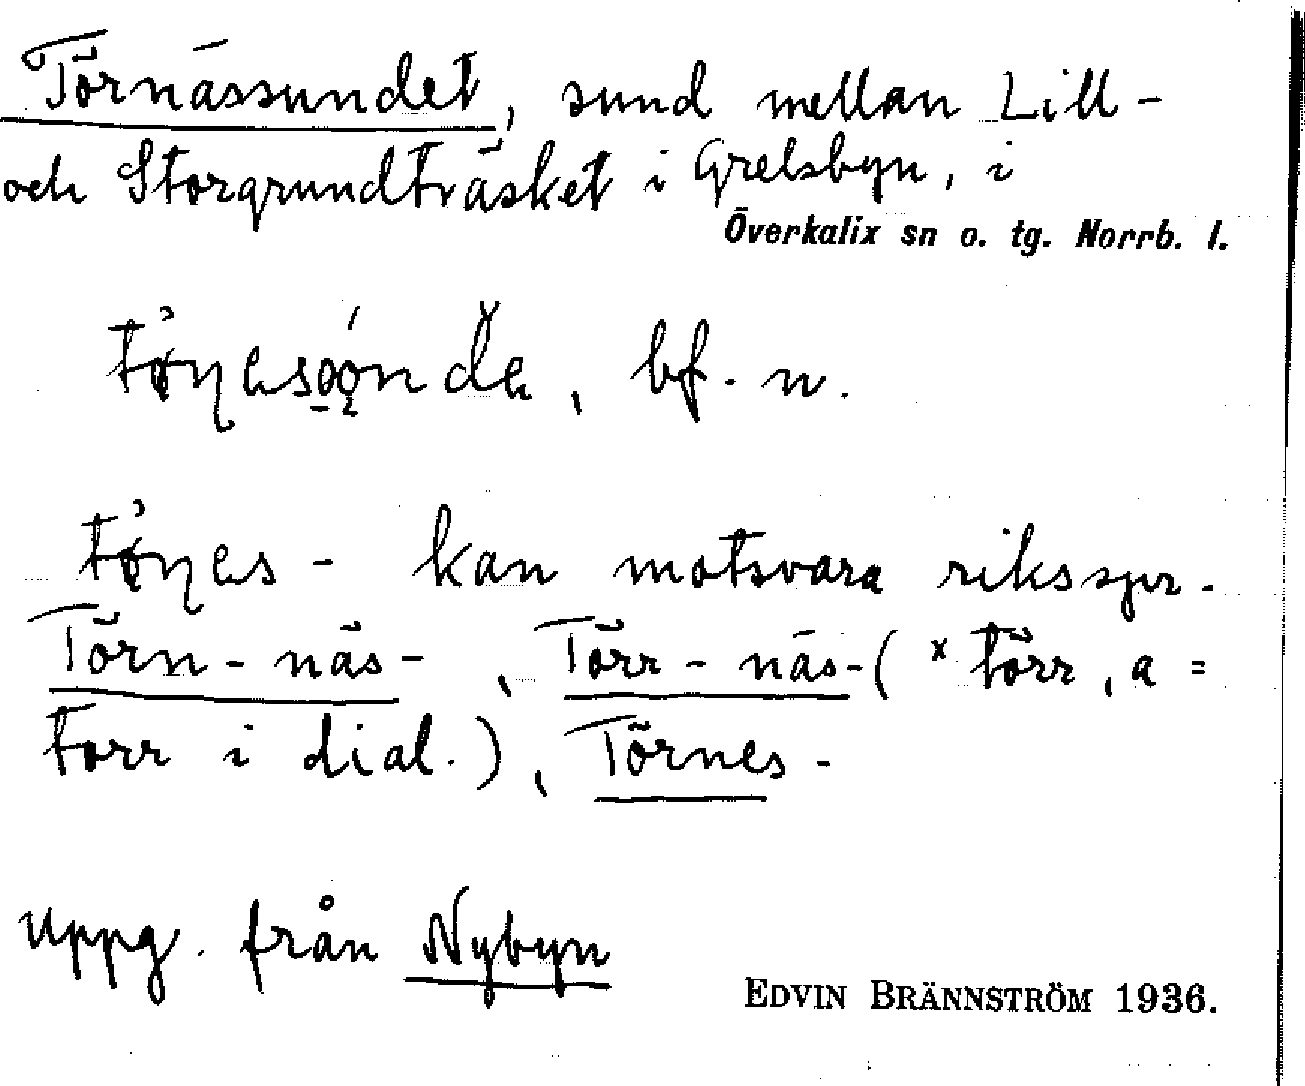 Törnässundet, sund mellan Lill-
och Storgrundträsket i Grelsbyn, i
Överkalix sn o. tg. Norrb. l.
bf. n.
kan motsvara riksspr.
Törn-näs-, Törr-näs- (× törr, a =
torr i dial.), Törnes-
Uppg. från Nybyn
EDVIN BRÄNNSTRÖM 1936.